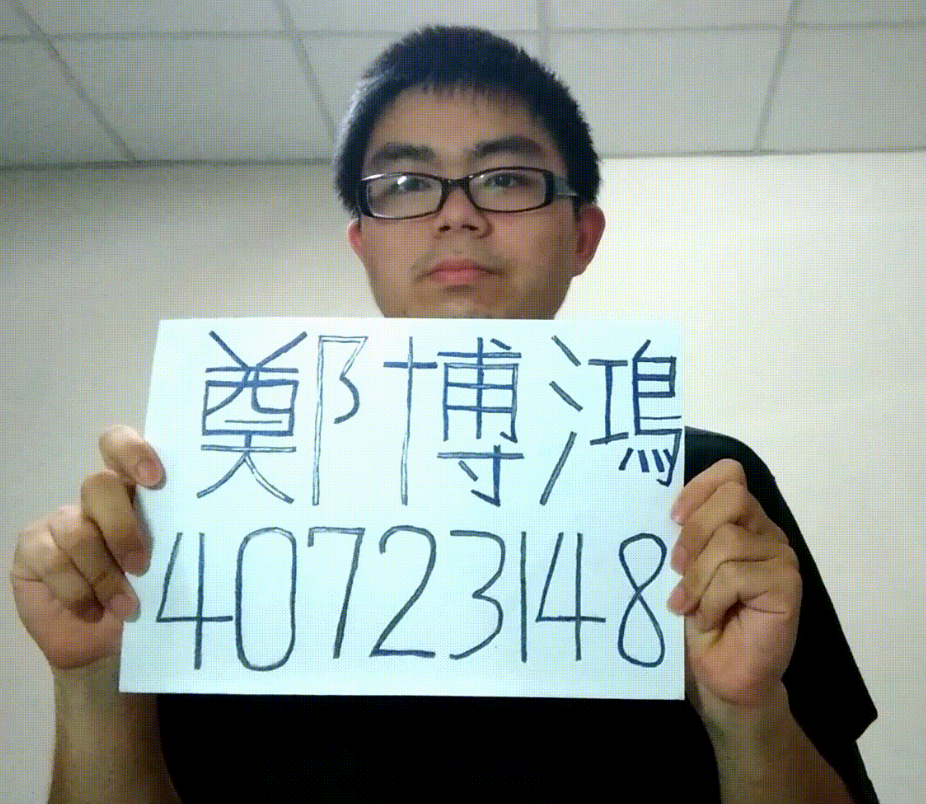 鄭博鴻
40723148